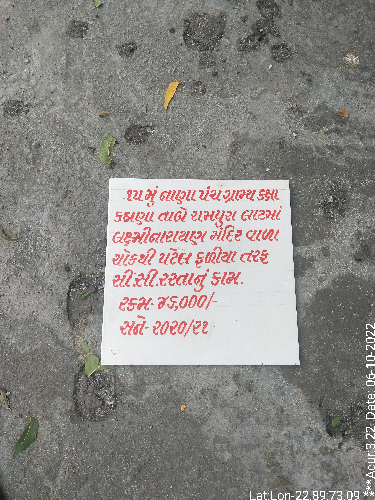 ૧૫ મું નાણા પંચ ગ્રામ્ય કક્ષા
કઠાણા તાબે રામપુરા લાટમાં
લક્ષ્મીનારાયણ મંદિર વાળા
ચોકથી પટેલ ફળીયા તરફ
સી.સી.રસ્તાનું કામ.
રકમ- ૪૬,૦૦૦/-
સને- ૨૦૨૦/૨૧
Lat Lon - 22.89:73.09
***Acur:3.22, Date: 06-10-2022